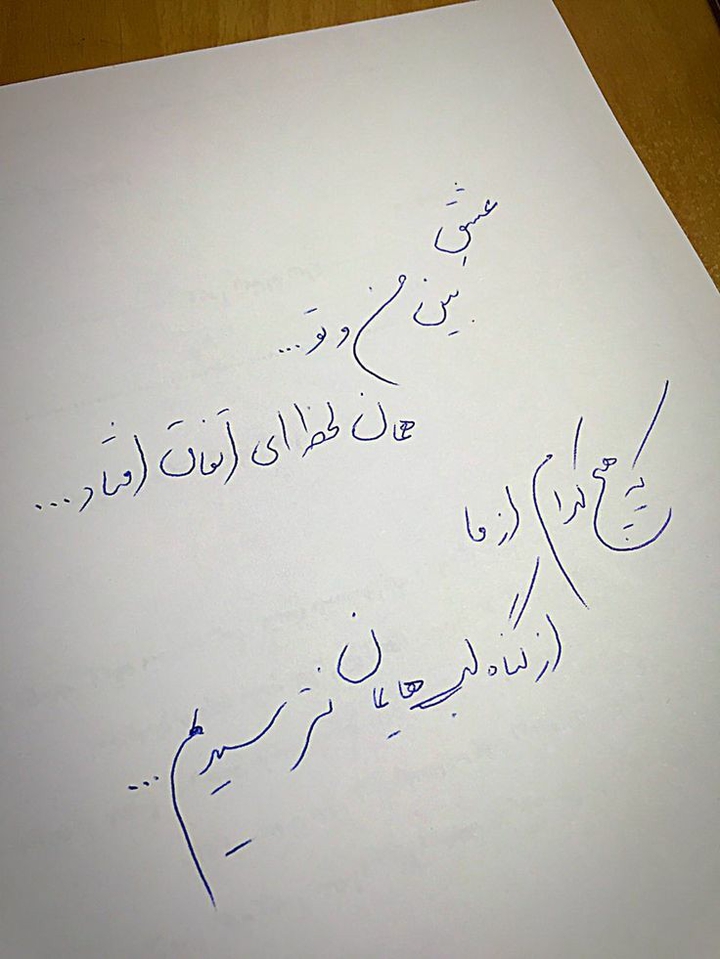 عشق
بین من و تو...
همان لحظه ای اتفاق افتاد...
که هیچ کدام از ما
از گناه لب هایمان نترسیدیم...